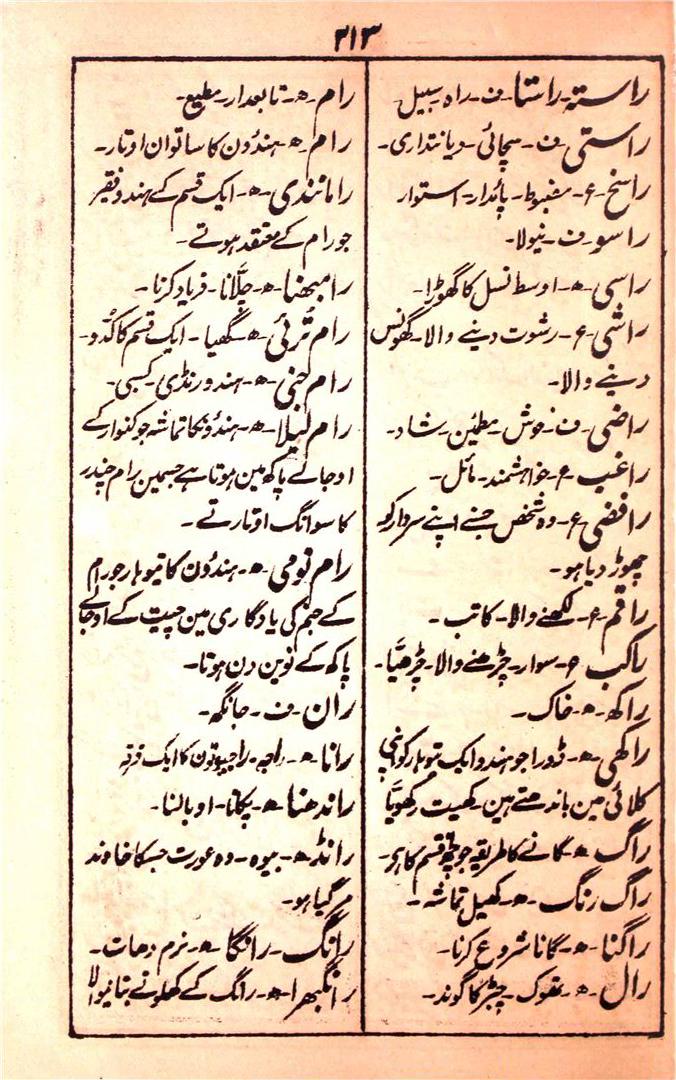 ۲۱۳
راستہ۔ راستا۔ ف۔ راہ۔ سبیل۔
راستی۔ ف۔ سچائی۔ دیانتداری۔
راسخ۔ ع۔ مضبوط۔ پائدار۔ استوار
راسو۔ ف۔ نیولا۔
راسی۔ ھ۔ اوسط نسل کا گھوڑا۔
راشی۔ ع۔ رشوت دینے والا۔ گھونس
دینے والا۔
راضی۔ ف۔ خوش۔ مطمئن۔ شاد۔
راغب۔ ع۔ خواہشمند۔ مائل۔
رافضی۔ ع۔ وہ شخص جسنے اپنے سردار کو
چھوڑ دیا ہو۔
راقم۔ ع۔ لکھنے والا۔ کاتب۔
راکب۔ ع۔ سوار۔ چڑھنے والا۔ چڑھیّا۔
راکھ۔ ھ۔ خاک۔
راکھی۔ ھ۔ ڈورا جو ہندو ایک تیوہار کو اپنی
کلائی مین باندھتے ہین۔ کھیت رکھویّا
راگ۔ ھ۔ گانے کا طریقہ جو چھ قسم کا ہی۔
راگ رنگ۔ ھ۔ کھیل تماشہ۔
راگنا۔ ھ۔ گانا شروع کرنا۔
رال۔ ھ۔ تھوک۔ چیڑ کا گوند۔
رام۔ ھ۔ تابعدار۔ مطیع۔
رام۔ ھ۔ ہندُون کا ساتوان اوتار۔
رامانندی۔ ھ۔ ایک قسم کے ہندو فقیر
جو رام کے معتقد ہوتے۔
رامبھنا۔ ھ۔ چلّانا۔ فریاد کرنا۔
رام تُرئی۔ ھ۔ گھیا۔ ایک قسم کا کدُو۔
رام جنی۔ ھ۔ ہندو رنڈی۔ کسبی۔
رام لیلا۔ ھ۔ ہندُونکا تماشہ جو کنوار کے
اوجالے پاکھ مین ہوتا ہے جسمین رام چندر
کا سوانگ اوتارتے۔
رام نومی۔ ھ۔ ہندُون کا تیوہار جو رام
کے جنم کی یادگاری مین چیت کے اوجالے
پاکھ کے نوین دن ہوتا۔
ران۔ ف۔ جانگھ۔
رانا۔ ھ۔ راجہ۔ راجپوتون کا ایک فرقہ
راندھنا۔ ھ۔ پکانا۔ اوبالنا۔
رانڈ۔ ھ۔ بیوہ۔ وہ عورت جسکا خاوند
مر گیا ہو۔
رانگ۔ رانگا۔ ھ۔ نرم دھات۔
رانگبھرا۔ ھ۔ رانگ کے کھلونے بنانیوالا